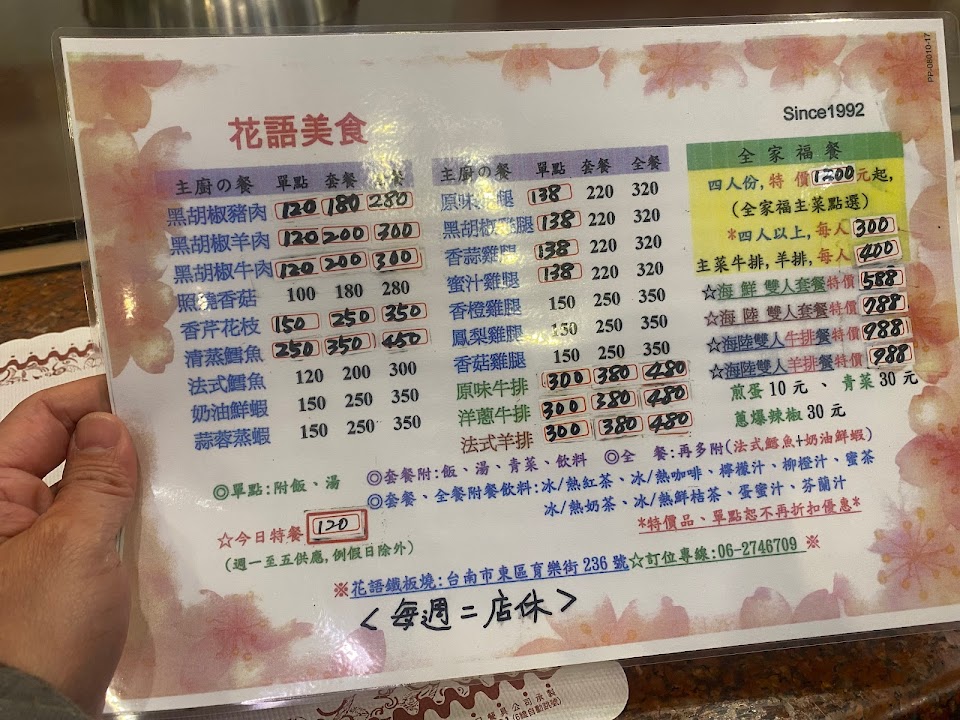 PP-08010-17
花語美食
Since1992
主廚の餐 單點 套餐 全餐
黑胡椒豬肉 120 180 280
黑胡椒羊肉 120 200 300
黑胡椒牛肉 120 200 300
照燒香菇 100 180 280
香芹花枝 150 250 350
清蒸鱈魚 250 350 450
法式鱈魚 120 200 300
奶油鮮蝦 150 250 350
蒜蓉蒸蝦 150 250 350
主廚の餐 單點 套餐 全餐
原味雞腿 138 220 320
黑胡椒雞腿 138 220 320
香蒜雞腿 138 220 320
蜜汁雞腿 138 220 320
香橙雞腿 150 250 350
鳳梨雞腿 150 250 350
香菇雞腿 150 250 350
原味牛排 300 380 480
洋蔥牛排 300 380 480
法式羊排 300 380 480
全家福餐
四人份,特 價1200元起,
(全家福主菜點選)
*四人以上,每人300
主菜牛排,羊排,每人400
☆海鮮 雙人套餐特價588
☆海陸 雙人套餐特價788
☆海陸雙人牛排餐特價988
☆海陸雙人羊排餐特價988
煎蛋10元、青菜30元
蔥爆辣椒30元
◎單點:附飯、湯
◎套餐附:飯、湯、青菜、飲料 ◎全 餐:再多附(法式鱈魚+奶油鮮蝦)
◎套餐、全餐附餐飲料:冰/熱紅茶、冰/熱咖啡、檸檬汁、柳橙汁、蜜茶
冰/熱奶茶、冰/熱鮮桔茶、蛋蜜汁、芬蘭汁
☆今日特餐 120
(週一至五供應,例假日除外)
*特價品、單點恕不再折扣優惠*
※花語鐵板燒:台南市東區育樂街236號☆訂位專線:06-2746709 ※
<每週二店休>
餐具公司承製
(6線自動跳號)